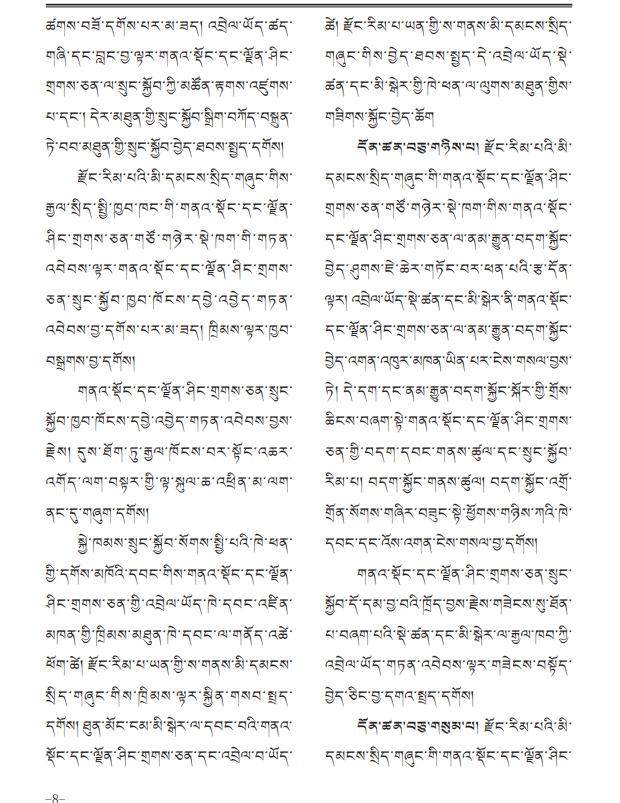 ཚགས་བཟོ་དགོས་པར་མ་ཟད། འབྲེལ་ཡོད་ཚད་
གཞི་དང་བླང་བྱ་ལྟར་གནའ་སྡོང་དང་ལྗོན་ཤིང་
གྲགས་ཅན་ལ་སྲུང་སྐྱོབ་ཀྱི་མཚོན་རྟགས་འཛུགས་
པ་དང་། དེར་མཐུན་གྱི་སྲུང་སྐྱོབ་སྒྲིག་བཀོད་བསྐྲུན་
ཏེ་བབ་མཐུན་གྱི་སྲུང་སྐྱོབ་བྱེད་ཐབས་སྤྱད་དགོས།
རྫོང་རིམ་པའི་མི་དམངས་སྲིད་གཞུང་གིས་
རྒྱལ་སྲིད་སྤྱི་ཁྱབ་ཁང་གི་གནའ་སྡོང་དང་ལྗོན་
ཤིང་གྲགས་ཅན་གཙོ་གཉེར་སྡེ་ཁག་གི་གཏན་
འབེབས་ལྟར་གནའ་སྡོང་དང་ལྗོན་ཤིང་གྲགས་
ཅན་སྲུང་སྐྱོབ་ཁྱབ་ཁོངས་དབྱེ་འབྱེད་གཏན་
འབེབས་བྱ་དགོས་པར་མ་ཟད། ཁྲིམས་ལྟར་ཁྱབ་
བསྒྲགས་བྱ་དགོས།
གནའ་སྡོང་དང་ལྗོན་ཤིང་གྲགས་ཅན་སྲུང་
སྐྱོབ་ཁྱབ་ཁོངས་དབྱེ་འབྱེད་གཏན་འབེབས་བྱས་
རྗེས། དུས་ཐོག་ཏུ་རྒྱལ་ཁོངས་བར་སྟོང་འཆར་
འགོད་ལག་བསྟར་གྱི་ལྟ་སྐུལ་ཆ་འཕྲིན་མ་ལག་
ནང་དུ་གཞུག་དགོས།
སྐྱེ་ཁམས་སྲུང་སྐྱོབ་སོགས་སྤྱི་པའི་ཁེ་ཕན་
གྱི་དགོས་མཁོའི་དབང་གིས་གནའ་སྡོང་དང་ལྗོན་
ཤིང་གྲགས་ཅན་གྱི་འབྲེལ་ཡོད་ཁེ་དབང་འཛིན་
མཁན་གྱི་ཁྲིམས་མཐུན་ཁེ་དབང་ལ་གནོད་འཚེ་
ཕོག་ཚེ། རྫོང་རིམ་པ་ཡན་གྱི་ས་གནས་མི་དམངས་
སྲིད་གཞུང་གིས་ཁྲིམས་ལྟར་སྐྱིན་གསབ་སྤྲད་
དགོས། ཐུན་མོང་ངམ་མི་སྒེར་ལ་དབང་བའི་གནའ་
སྡོང་དང་ལྗོན་ཤིང་གྲགས་ཅན་དང་འབྲེལ་བ་ཡོད་
ཚེ། རྫོང་རིམ་པ་ཡན་གྱི་ས་གནས་མི་དམངས་སྲིད་
གཞུང་གིས་བྱེད་ཐབས་སྤྱད་དེ་འབྲེལ་ཡོད་སྡེ་
ཚན་དང་མི་སྒེར་གྱི་ཁེ་ཕན་ལ་ལུགས་མཐུན་གྱིས་
གཟིགས་སྐྱོང་བྱེད་ཆོག
དོན་ཚན་བཅུ་གཉིས་པ། རྫོང་རིམ་པའི་མི་
དམངས་སྲིད་གཞུང་གི་གནའ་སྡོང་དང་ལྗོན་ཤིང་
གྲགས་ཅན་གཙོ་གཉེར་སྡེ་ཁག་གིས་གནའ་སྡོང་
དང་ལྗོན་ཤིང་གྲགས་ཅན་ལ་ནམ་རྒྱུན་བདག་སྐྱོང་
བྱེད་ཤུགས་ཇེ་ཆེར་གཏོང་བར་ཕན་པའི་རྩ་དོན་
ལྟར། འབྲེལ་ཡོད་སྡེ་ཚན་དང་མི་སྒེར་ནི་གནའ་སྡོང་
དང་ལྗོན་ཤིང་གྲགས་ཅན་ལ་ནམ་རྒྱུན་བདག་སྐྱོང་
བྱེད་འགན་འཁུར་མཁན་ཡིན་པར་ངེས་གསལ་བྱས་
ཏེ། དེ་དག་དང་ནམ་རྒྱུན་བདག་སྐྱོང་སྐོར་གྱི་གྲོས་
ཆིངས་བཞག་སྟེ་གནའ་སྡོང་དང་ལྗོན་ཤིང་གྲགས་
ཅན་གྱི་བདག་དབང་གནས་ཚུལ་དང་སྲུང་སྐྱོབ་
རིམ་པ། བདག་སྐྱོང་གནས་ཚུལ། བདག་སྐྱོང་འགྲོ་
གྲོན་སོགས་གཞིར་བཟུང་སྟེ་ཕྱོགས་གཉིས་ཀའི་ཁེ་
དབང་དང་འོས་འགན་ངེས་གསལ་བྱ་དགོས།
གནའ་སྡོང་དང་ལྗོན་ཤིང་གྲགས་ཅན་སྲུང་
སྐྱོབ་དོ་དམ་བྱ་བའི་ཁྲོད་བྱས་རྗེས་གཟེངས་སུ་ཐོན་
པ་བཞག་པའི་སྡེ་ཚན་དང་མི་སྒེར་ལ་རྒྱལ་ཁབ་ཀྱི་
འབྲེལ་ཡོད་གཏན་འབེབས་ལྟར་གཟེངས་བསྟོད་
བྱེད་ཅིང་བྱ་དགའ་སྤྲད་དགོས།
དོན་ཚན་བཅུ་གསུམ་པ། རྫོང་རིམ་པའི་མི་
དམངས་སྲིད་གཞུང་གི་གནའ་སྡོང་དང་ལྗོན་ཤིང་
–8–